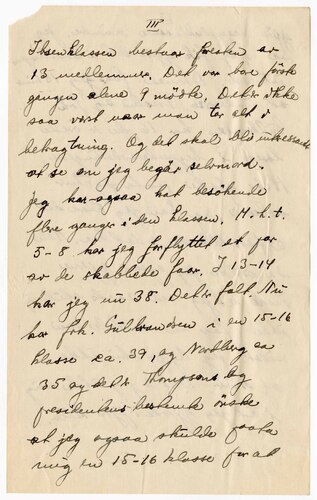 III
Ibsenklassen bestaar forresten av
13 medlemmer. Det var bare første
gangen alene 9 mødte. Det er ikke
saa værst naar man tar alt i
betragtning. Og det skal bli interessant
at se om jeg begår selvmord.
jeg har ogsaa hat besökende
flere ganger i den klassen. M.h.t.
5-8 har jeg forflyttet et par
av de skabbede faar. I 13-14
har jeg nu 38. Det er fuldt. Nu
har frk. Gulbrandsen i en 15-16
klasse ca. 39, og Nordberg ca
35 og det er Thompsons og
presidentens bestemte önske
at jeg ogsaa skulde paata
mig en 15-16 klasse for at